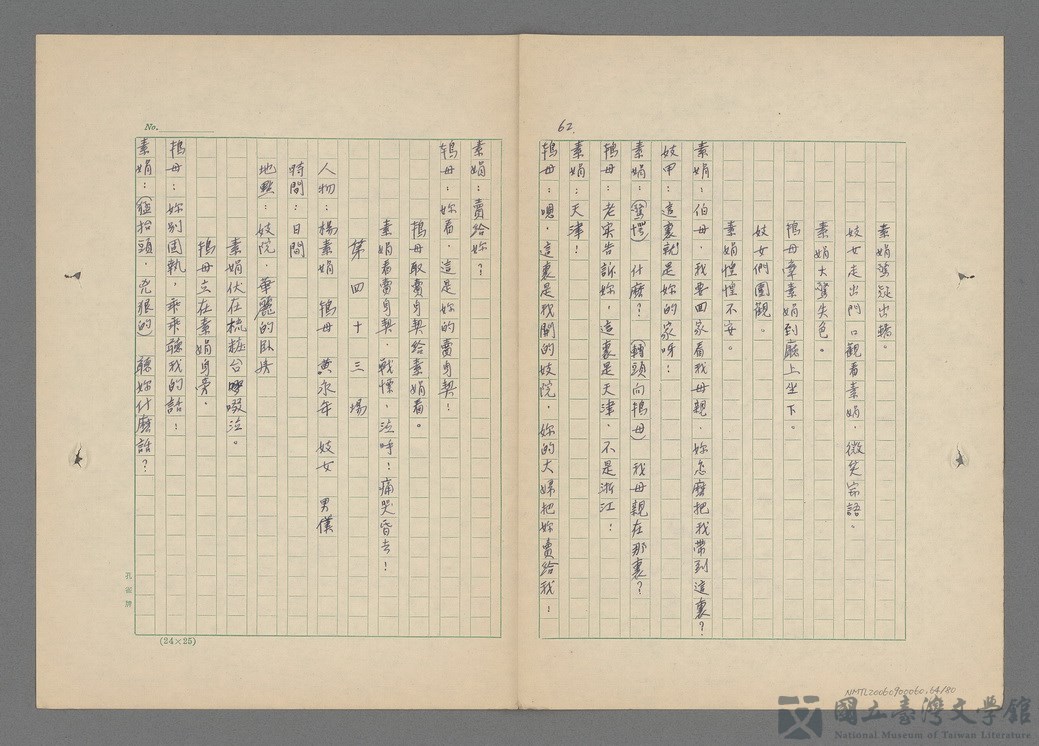 62
素娟驚疑出轎。
妓女走出門口觀看素娟，微笑訴語。
素娟大驚失色。
鴇母牽素娟到廳上坐下。
妓女們圍觀。
素娟惶惶不安。
素娟：伯母，我要回家看我母親，妳怎麼把我帶到這裏？
妓甲：這裏就是妳的家呀！
素娟：（驚愕）什麼？（轉頭向鴇母）我母親在那裏？
鴇母：老实告訴妳，這裏是天津，不是浙江！
素娟：天津！
鴇母：嗯，這裏是我開的妓院，妳的大婦把妳賣給我！
素娟：賣給妳？
鴇母：妳看，這是妳的賣身契！
鴇母取賣身契給素娟看。
素娟看賣身契，戰慄，泣呼！痛哭昏去！
第四十三場
人物：楊素娟　鴇母　黄永年　妓女　男僕
時間：日間
地點：妓院，華麗的臥房
素娟伏在梳粧台啜泣。
鴇母立在素娟身旁，
鴇母：妳別固執，乖乖聽我的話！
素娟：（抬頭，兇狠的）聽妳什麼話？
No.
(24×25)
孔雀牌
NMTL20060900060.64/80
國立臺灣文學館
National Museum of Taiwan Literature